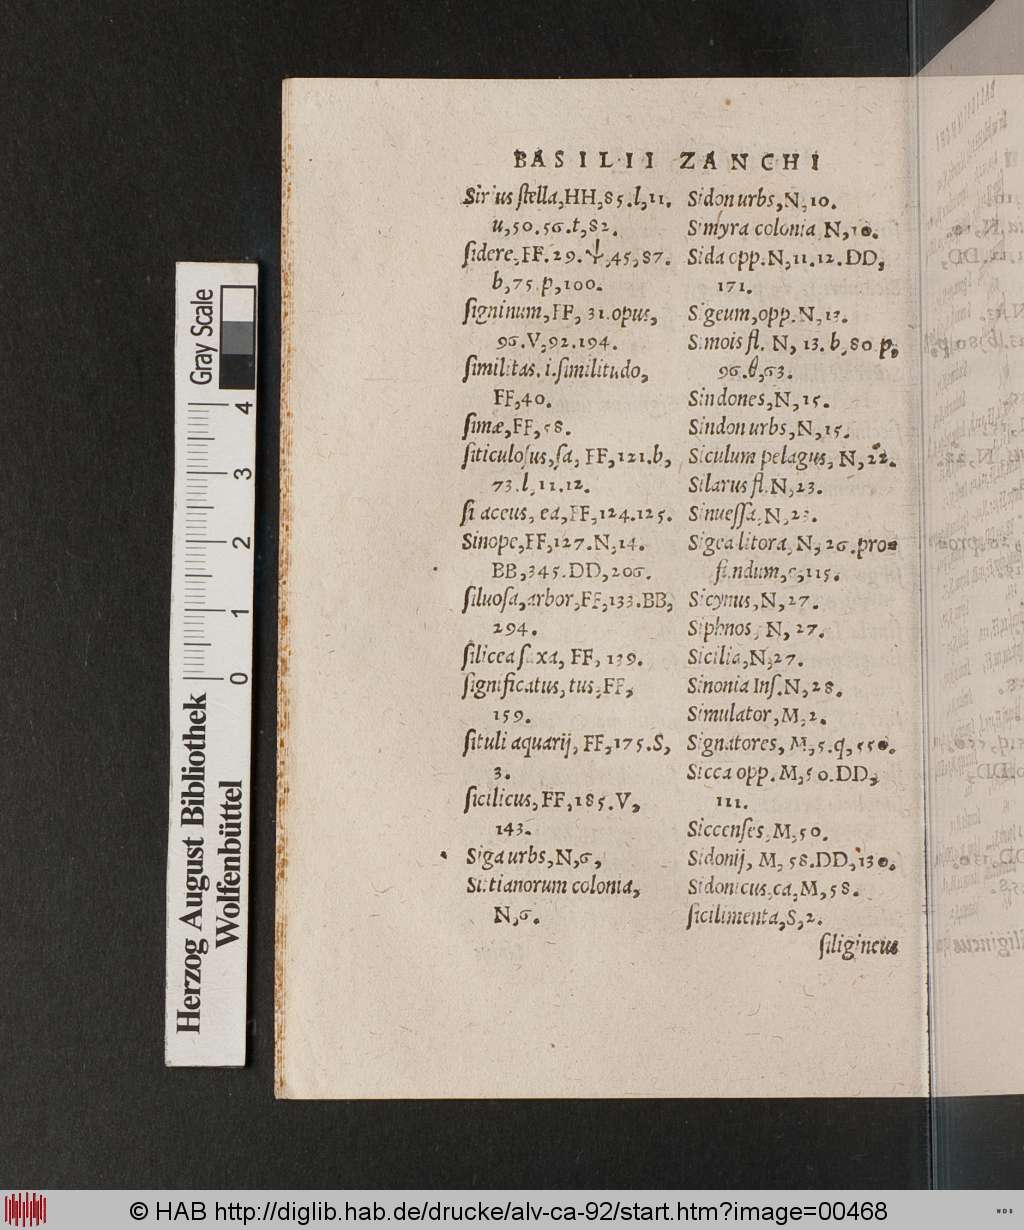 BASILII ZANCHI
Sirius ſtella, HH, 85. l, 11.
u, 50. 56. t, 82.
ſidere, FF. 29. Ψ, 45, 87.
b, 75. p, 100.
ſigninum, FF, 31. opus,
96. V, 92. 194.
ſimilitas. i. ſimilitudo,
FF, 40.
ſimæ, FF, 58.
ſiticuloſus, ſa, FF, 121. b,
73. l, 11. 12.
ſi aceus, ea, FF, 124. 125.
Sinope, FF, 127. N, 14.
BB, 345. DD, 206.
ſiluoſa, arbor, FF, 133. BB,
294.
ſilicea ſaxa, FF, 139.
ſignificatus, tus, FF,
159.
ſituli aquarij, FF, 175. S,
3.
ſicilicus, FF, 185. V,
143.
Siga urbs, N, 6,
Sittianorum colonia,
N, 6.
Sidon urbs, N, 10.
Simyra colonia N, 10.
Sida opp. N, 11. 12. DD,
171.
Sigeum, opp. N, 13.
Simois fl. N, 13. b, 80. p,
96. θ, 63.
Sindones, N, 15.
Sindon urbs, N, 15.
Siculum pelagus, N, 22.
Silarus fl. N, 23.
Sinueſſa, N, 23.
Sigea litora, N, 26. pro=
fundum, c, 115.
Sicynus, N, 27.
Siphnos, N, 27.
Sicilia, N, 27.
Sinonia Inſ. N, 28.
Simulator, M, 2.
Signatores, M, 5. q, 550.
Sicca opp. M, 50. DD,
111.
Siccenſes, M, 50.
Sidonij, M, 58. DD, 130.
Sidonicus, ca, M, 58.
ſicilimenta, S, 2.
ſiligineus
Gray Scale
0 1 2 3 4
Herzog August Bibliothek
Wolfenbüttel
© HAB http://diglib.hab.de/drucke/alv-ca-92/start.htm?image=00468